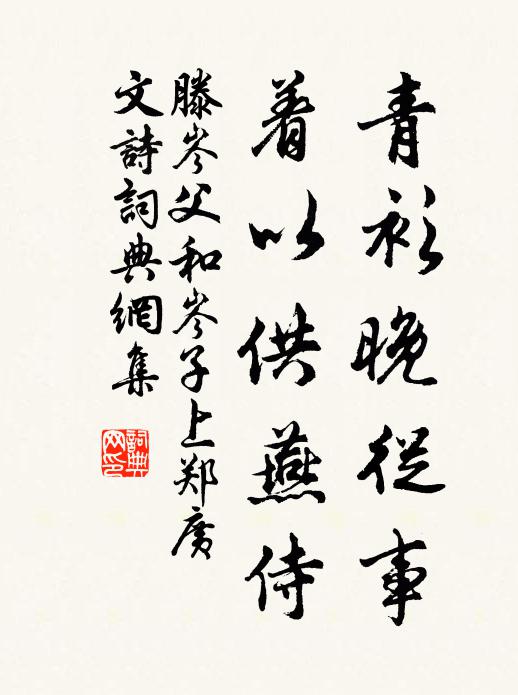 青衫晚從事
着以供燕侍
滕岑父和岑子上郑廣
文詩詞典網集
詞典
网印